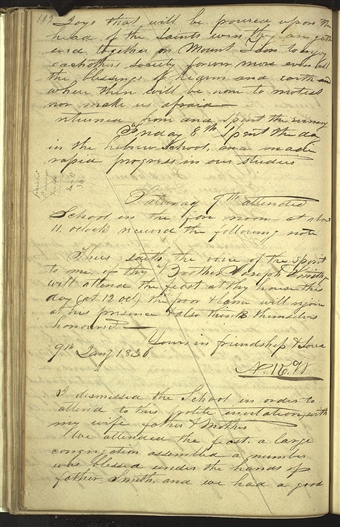 joys that will be poured upon the
head of the Saints when they are gath
ered together on Mount Zion to enjoy
each others society forever more even all
the blessings of heaven and earth
where there will be none to molest
nor make us afraid—
returned home and spent the evening
Friday 8th Spent the day
in the hebrew School, and made
rapid progress in our studies
Saturday 9th attended
School in the fore noon at about
11. oclock received the following note
Thus saith the voice of the spirit
to me, if thy Brother Joseph Smith jr
will attend the feast at thy house this
day (at 12 ocl) the poor & lame will rejoice
at his presence & also think themselves
honoured—
Yours in friendship & Love
9th Jany 1836
N. K. W
I dismissed the School in order to
attend to this polite invitation, with
my wife father & mother
We attended the feast, a large
congregation assembled a number
was blessed under the hands of
father Smith, and we had a good